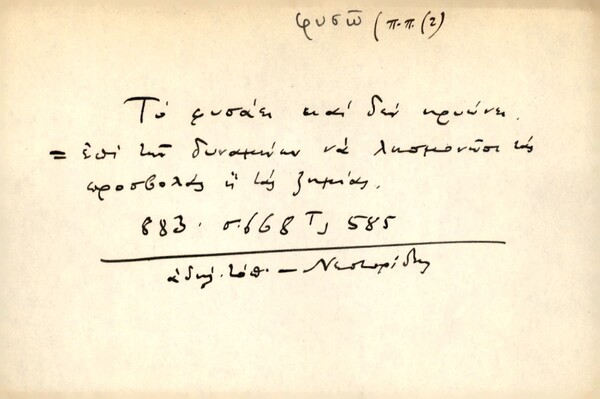 φυσῶ (π.π.(2)
Τό φυσάει καί δέν κρυώνει.
= ἐπί τῶν δυναμένων νά λησμονῶσι τάς
προσβολάς ἤ τάς ζημίας.
883. σ. 668 Τ, 585
ἀδήλ. τόπ. – Νεστορίδης